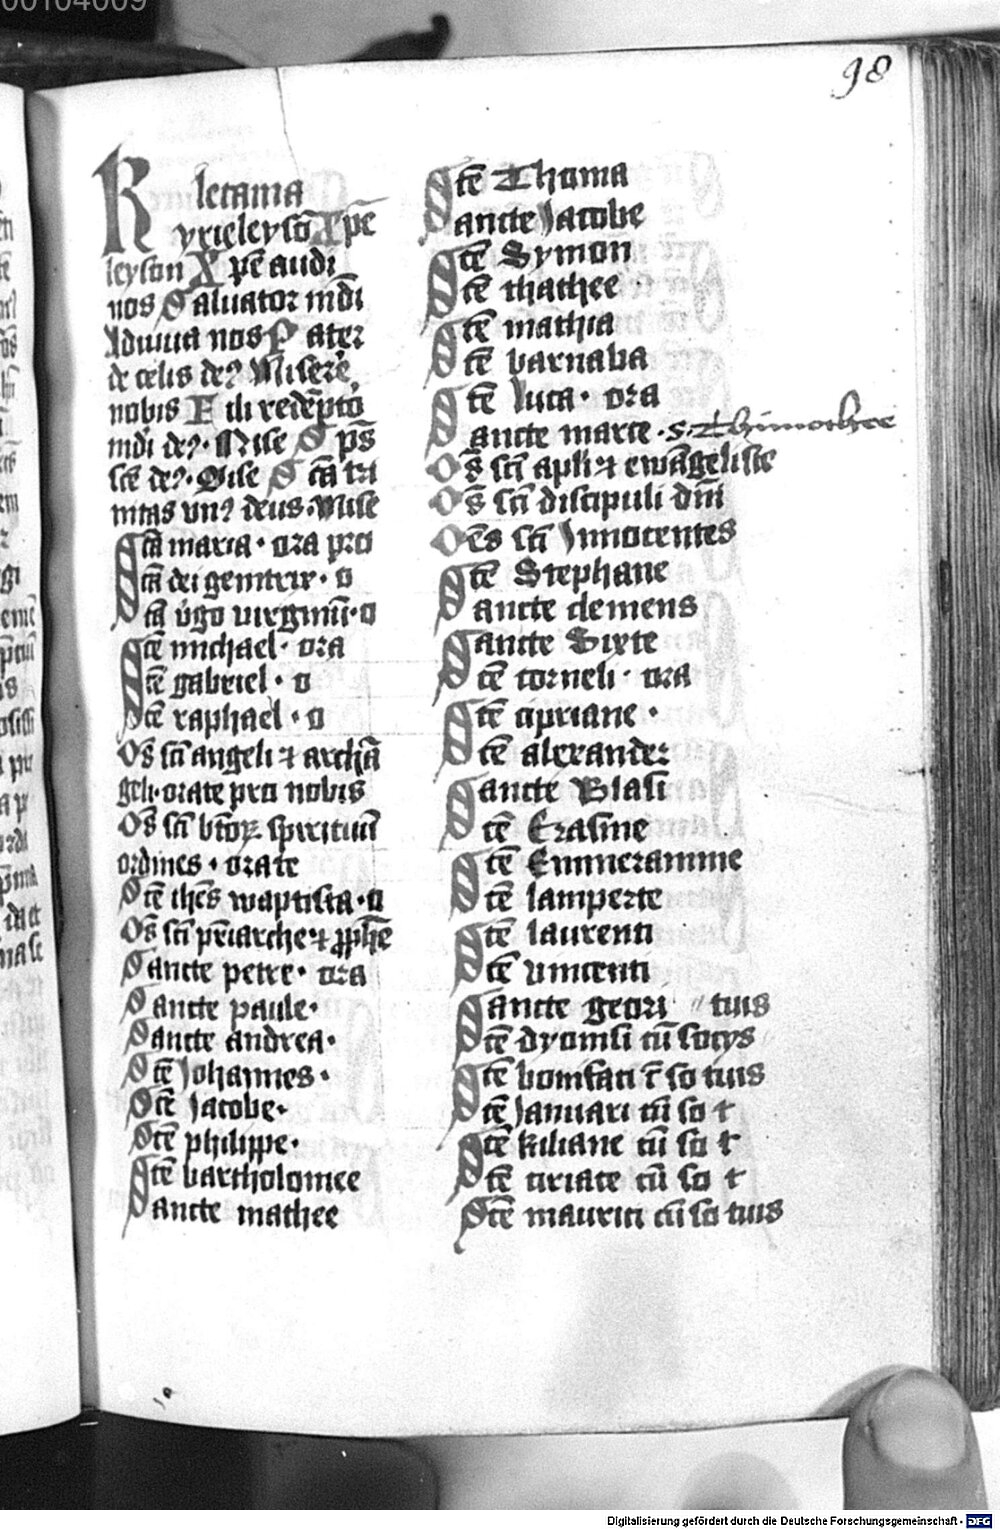 00104009
98
letania
Kyrieleysō Xpē
leyson Xpē audi
nos Saluator mūdi
Adiuua nos Pater
de celis de? Misere
nobis Fili redēpto
mūdi de?. Mise Sps̄
scē de?. Mise Scā tri
nitas vn? deus. Mise
Scā maria. ora pro
Scā dei genitrix. o
Scā v̇go virginū. o
Scē michael. ora
Scē gabriel. o
Scē raphael. o
Os̄ scī angeli ⁊ archā
geli. orate pro nobis
Os̄ scī btōꝝ spirituū
ordines. orate
Scē ihēs waptista. o
Os̄ scī pr̄iarche ⁊ ꝓphē
Sancte petre. ora
Sancte paule.
Sancte andrea.
Scē Johannes.
Scē Jacobe.
Scē philippe.
Scē bartholomee
Sancte mathee
Scē Thoma
Sancte Jacobe
Scē Symon
Scē thathee
Scē mathia
Scē barnaba
Scē luca. ora
Sancte marce. S. Thimothee
Os̄ scī apli ⁊ ewāgeliste
Os̄ scī discipuli dn̄i
Oēs scī Innocentes
Scē Stephane
Sancte clemens
Sancte Sixte
Scē corneli. ora
Scē cipriane.
Scē alexander
Sancte Blasi
Scē Erasme
Scē Emmeramme
Scē lamperte
Scē laurenti
Scē vincenti
Sancte geori tuis
Scē dyonisi cū socys
Scē bonifaci c̄ so tuis
Scē Januari cū so t
Scē kiliane cū so t
Scē ciriace cū so t
Scē maurici cū so tuis
Digitalisierung gefördert durch die Deutsche Forschungsgemeinschaft - DFG